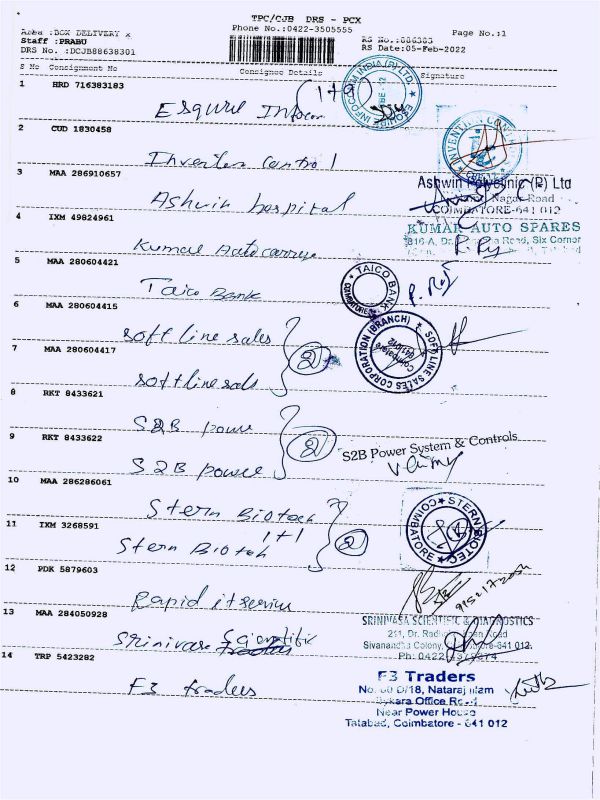 TPC/CJB DRS - PCX
Area :BOX DELIVERY x
Phone No.:0422-3505555
Staff : PRABU
RS No.:886383
Page No.:1
DRS No. :DCJB88638301
RS Date:05-Feb-2022
S No Consignment No
Consignee Details
Signature
1 HRD 716383183
(1+9)
Esquire Infocom
ESQUIRE INFOCOM INDIA (P) LTD.
2 CUD 1830458
Invention Control
3 MAA 286910657
Ashwin hospital
Ashwin Polyclinic (P) Ltd
Nagar Road
COIMBATORE-641 012
4 IXM 49824961
Kumar Auto
KUMAR AUTO SPARES
816-A, Dr. Road, Six Corner
5 MAA 280604421
Taico Bank
TAICO BANK
COIMBATORE
6 MAA 280604415
soft line sales
7 MAA 280604417
softline sales
2
SOFT LINE SALES CORPORATION (BRANCH)
Coimbatore
641012
8 RKT 8433621
S2B power
9 RKT 8433622
S2B power
2
S2B Power System & Controls
10 MAA 286286061
Stern Biotech
11 IXM 3268591
1+1
Stern Biotech
2
STERN BIOTEC
COIMBATORE
12 PDK 5879603
Rapid it service
13 MAA 284050928
Srinivasa Scientific
SRINIVASA SCIENTIFIC & DIAGNOSTICS
211, Dr. Road
Sivanandha Colony, 641 012.
Ph: 0422
14 TRP 5423282
F3 traders
F3 Traders
No. D/18, Nataraj
Office Road
Near Power House
Tatabad, Coimbatore - 641 012